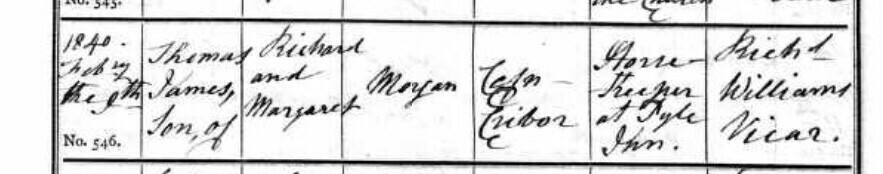 1840.
Feb ry
the 9th
No. 546.
Thomas
James,
Son, of
Richard
and
Margaret
Morgan
Cefn
Cribor
Horse-
Keeper
at Pyle
Inn.
Richd
Williams
Vicar.